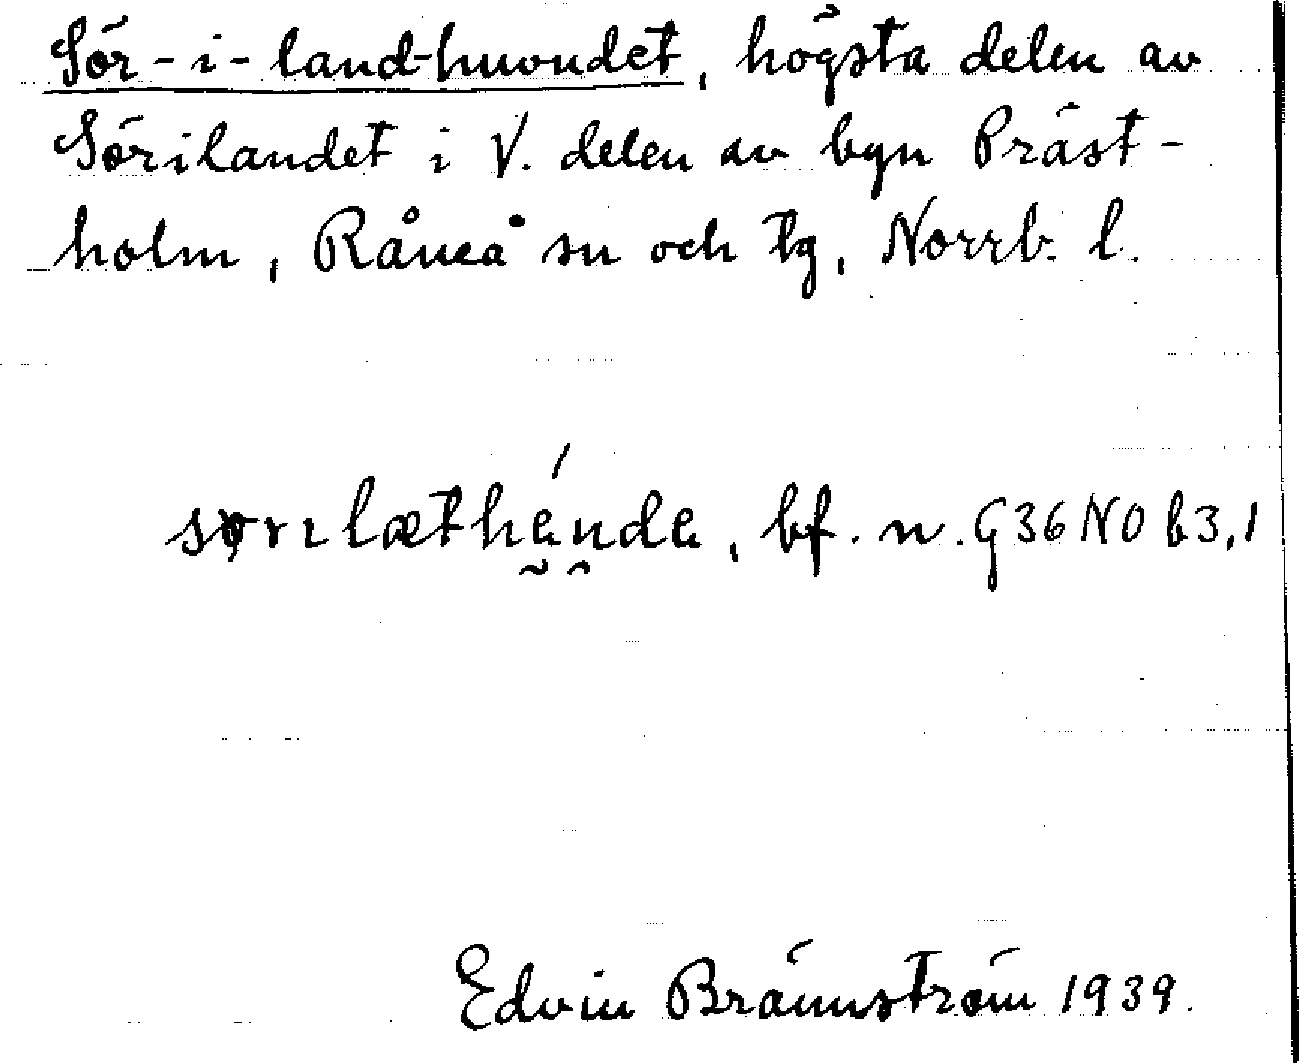 Sör-i-land-huvudet, högsta delen av
Sörilandet i V. delen av byn Präst-
holm, Råneå sn och tg, Norrb. l.
bf. n. G36NO b3,1
Edvin Brännström 1939.